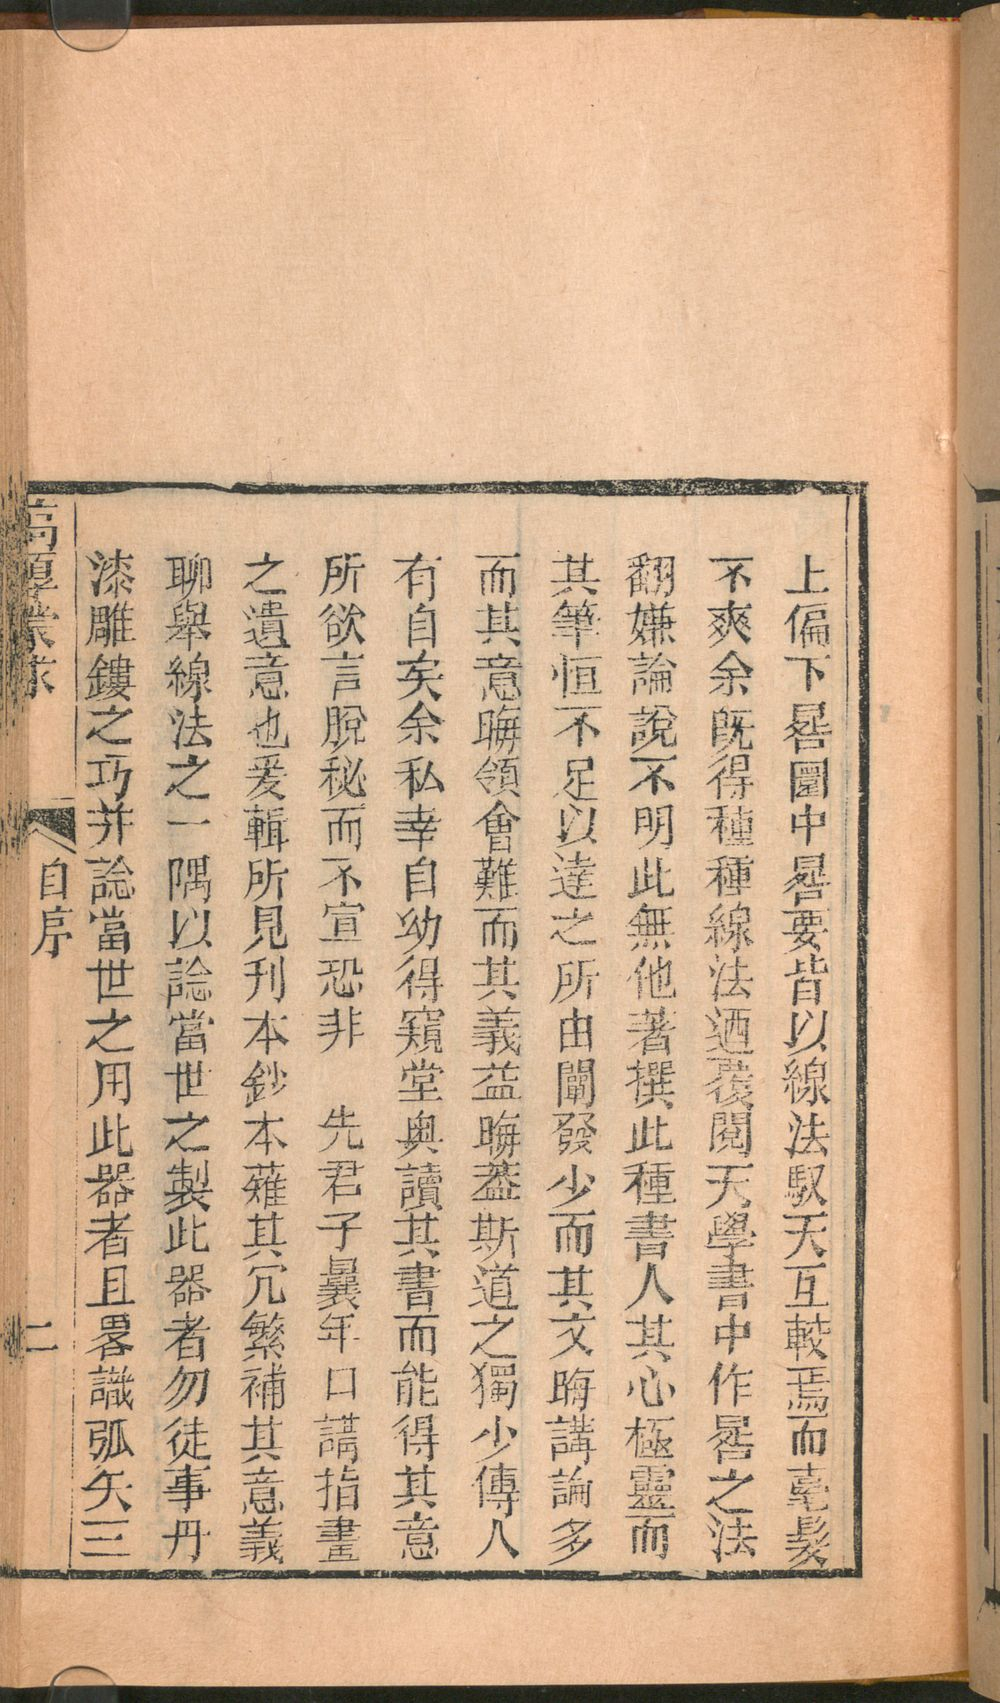 上偏下晷圓中晷要皆以線法馭天互較焉而毫髮
不爽余既得種種線法迺覆閱天學書中作晷之法
翻嫌論說不明此無他著撰此種書人其心極靈而
其筆恒不足以達之所由闡發少而其文晦講論多
而其意晦領會難而其義益晦蓋斯道之獨少傳人
有自矣余私幸自幼得窺堂奥讀其書而能得其意
所欲言脫秘而不宣恐非　先君子曩年口講指畫
之遺意也爰輯所見刊本鈔本薙其冗繁補其意義
聊舉線法之一隅以諗當世之製此器者勿徒事丹
漆雕鏤之巧并諗當世之用此器者且畧識弧矢三
高厚蒙求
自序
二